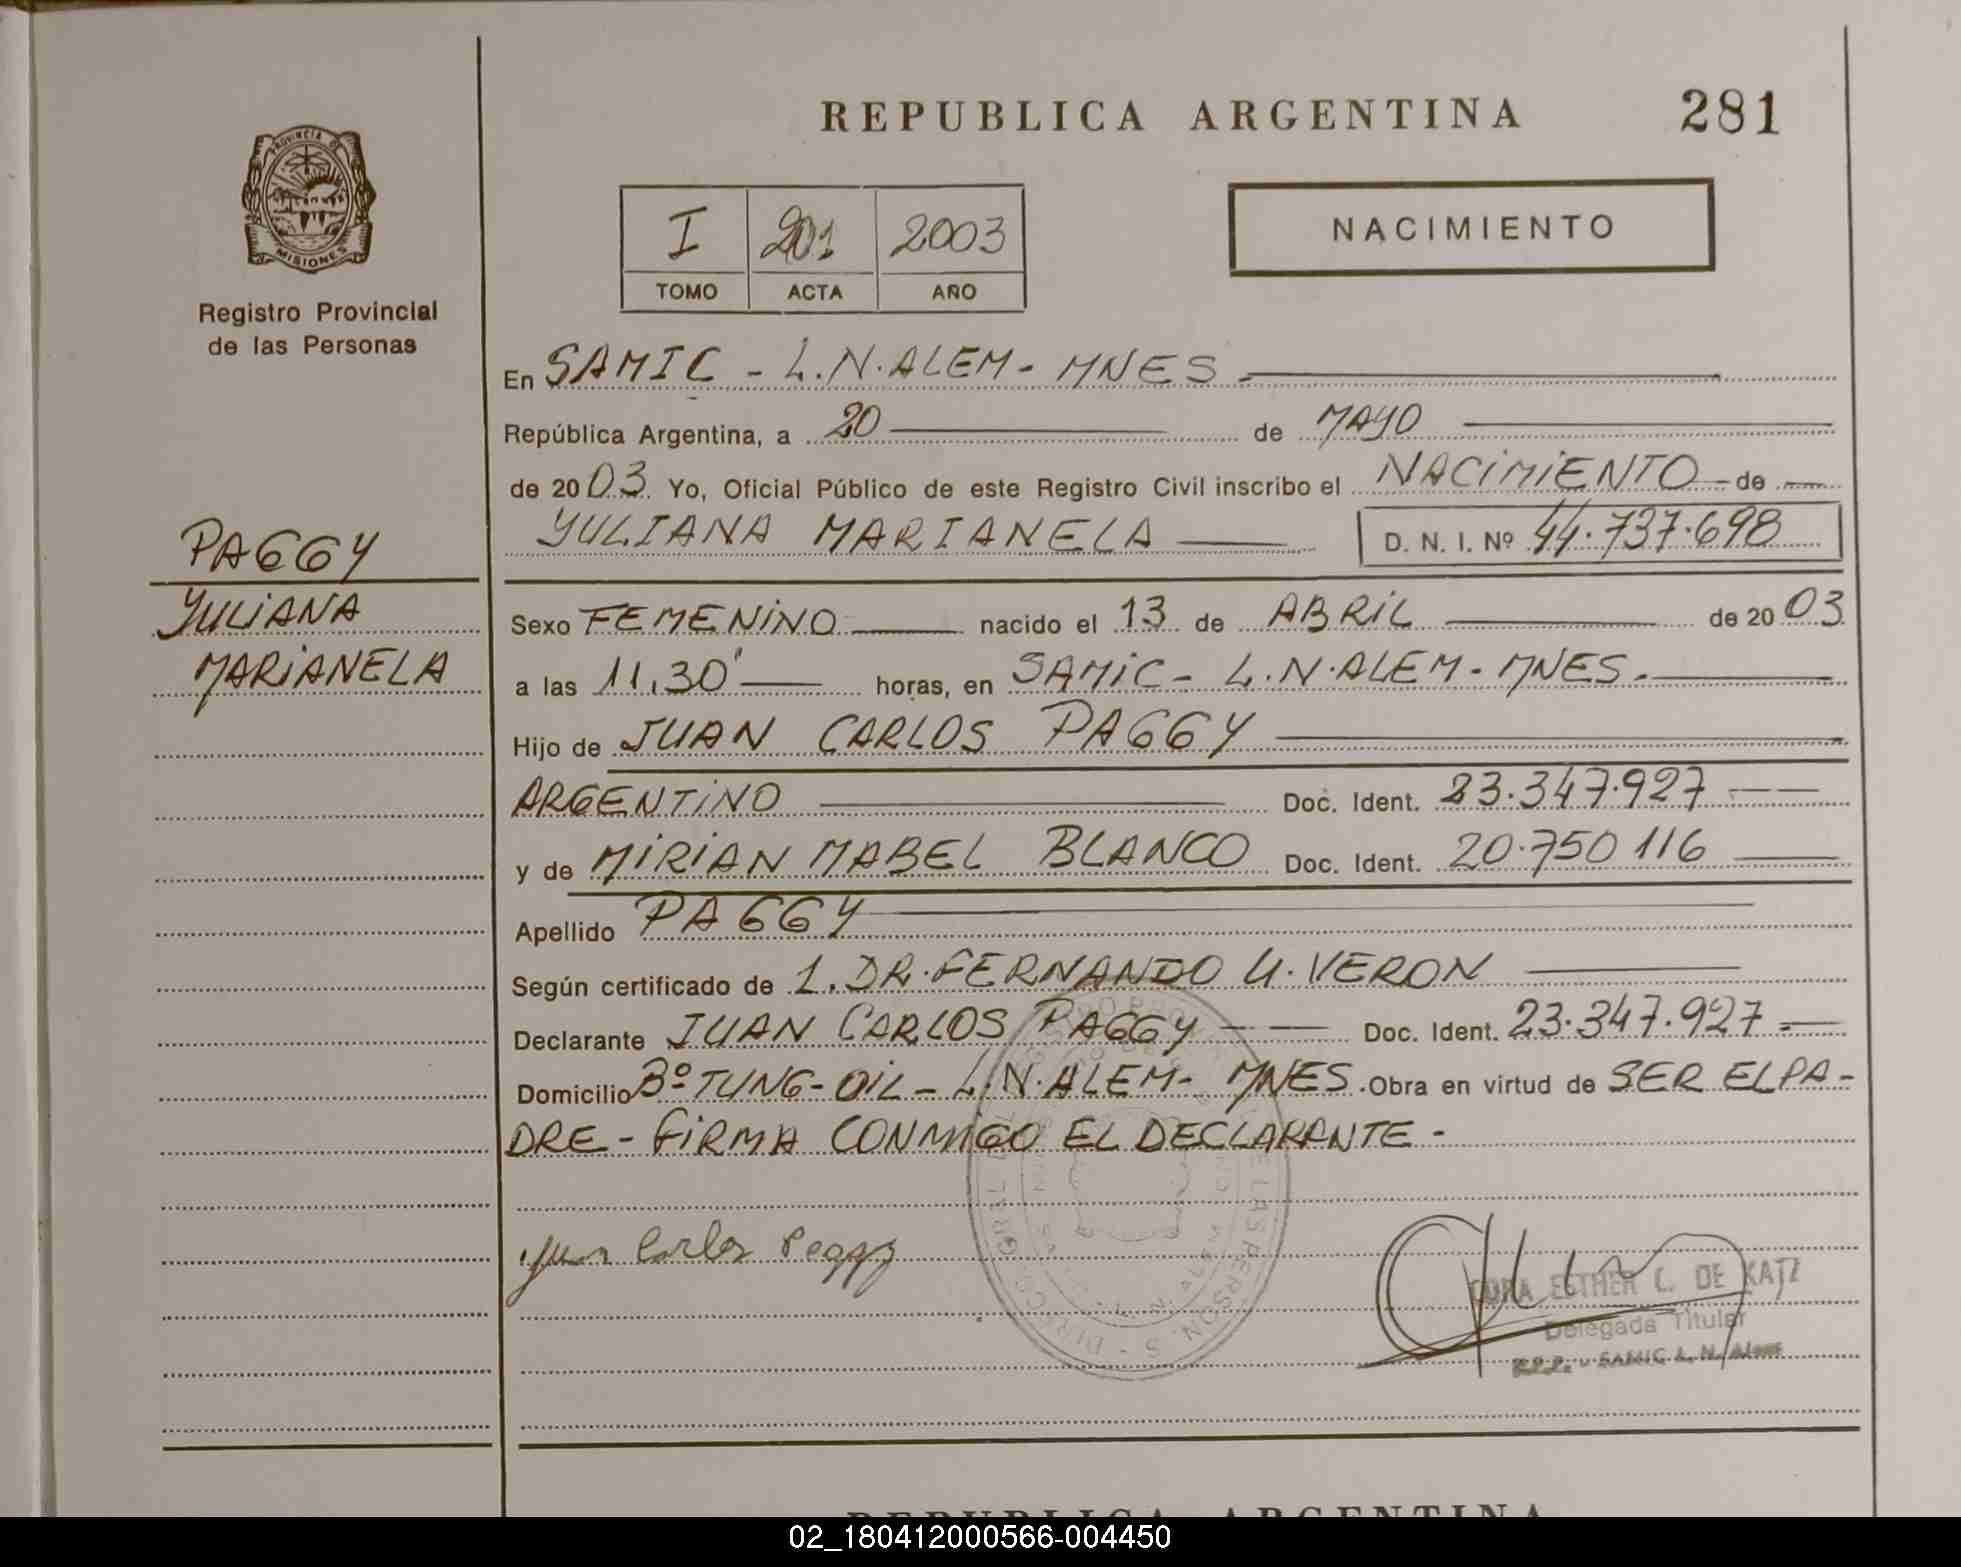 REPUBLICA ARGENTINA 281
PROVINCIA DE MISIONES
Registro Provincial
de las Personas
I 201 2003
TOMO ACTA AÑO
NACIMIENTO
En SAMIC - L.N.ALEM - MNES -
República Argentina, a 20 de MAYO
de 2003 Yo, Oficial Público de este Registro Civil inscribo el NACIMIENTO de
YULIANA MARIANELA D. N. I. Nº 44.737.698
PAGGY
YULIANA
MARIANELA
Sexo FEMENINO nacido el 13 de ABRIL de 2003
a las 11,30' horas, en SAMIC - L.N.ALEM - MNES.
Hijo de JUAN CARLOS PAGGY
ARGENTINO Doc. Ident. 23.347.927
y de MIRIAN MABEL BLANCO Doc. Ident. 20.750 116
Apellido PAGGY
Según certificado de 1. DR. FERNANDO U. VERON
Declarante JUAN CARLOS PAGGY Doc. Ident. 23.347.927
Domicilio Bº TUNG-OIL - L.N.ALEM - MNES. Obra en virtud de SER EL PA-
DRE - FIRMA CONMIGO EL DECLARANTE -
Juan Carlos Paggy
ESTHER C. DE KATZ
Delegada Titular
R.P.P. - SAMIC L. N. Alem
REPUBLICA ARGENTINA
02_180412000566-004450